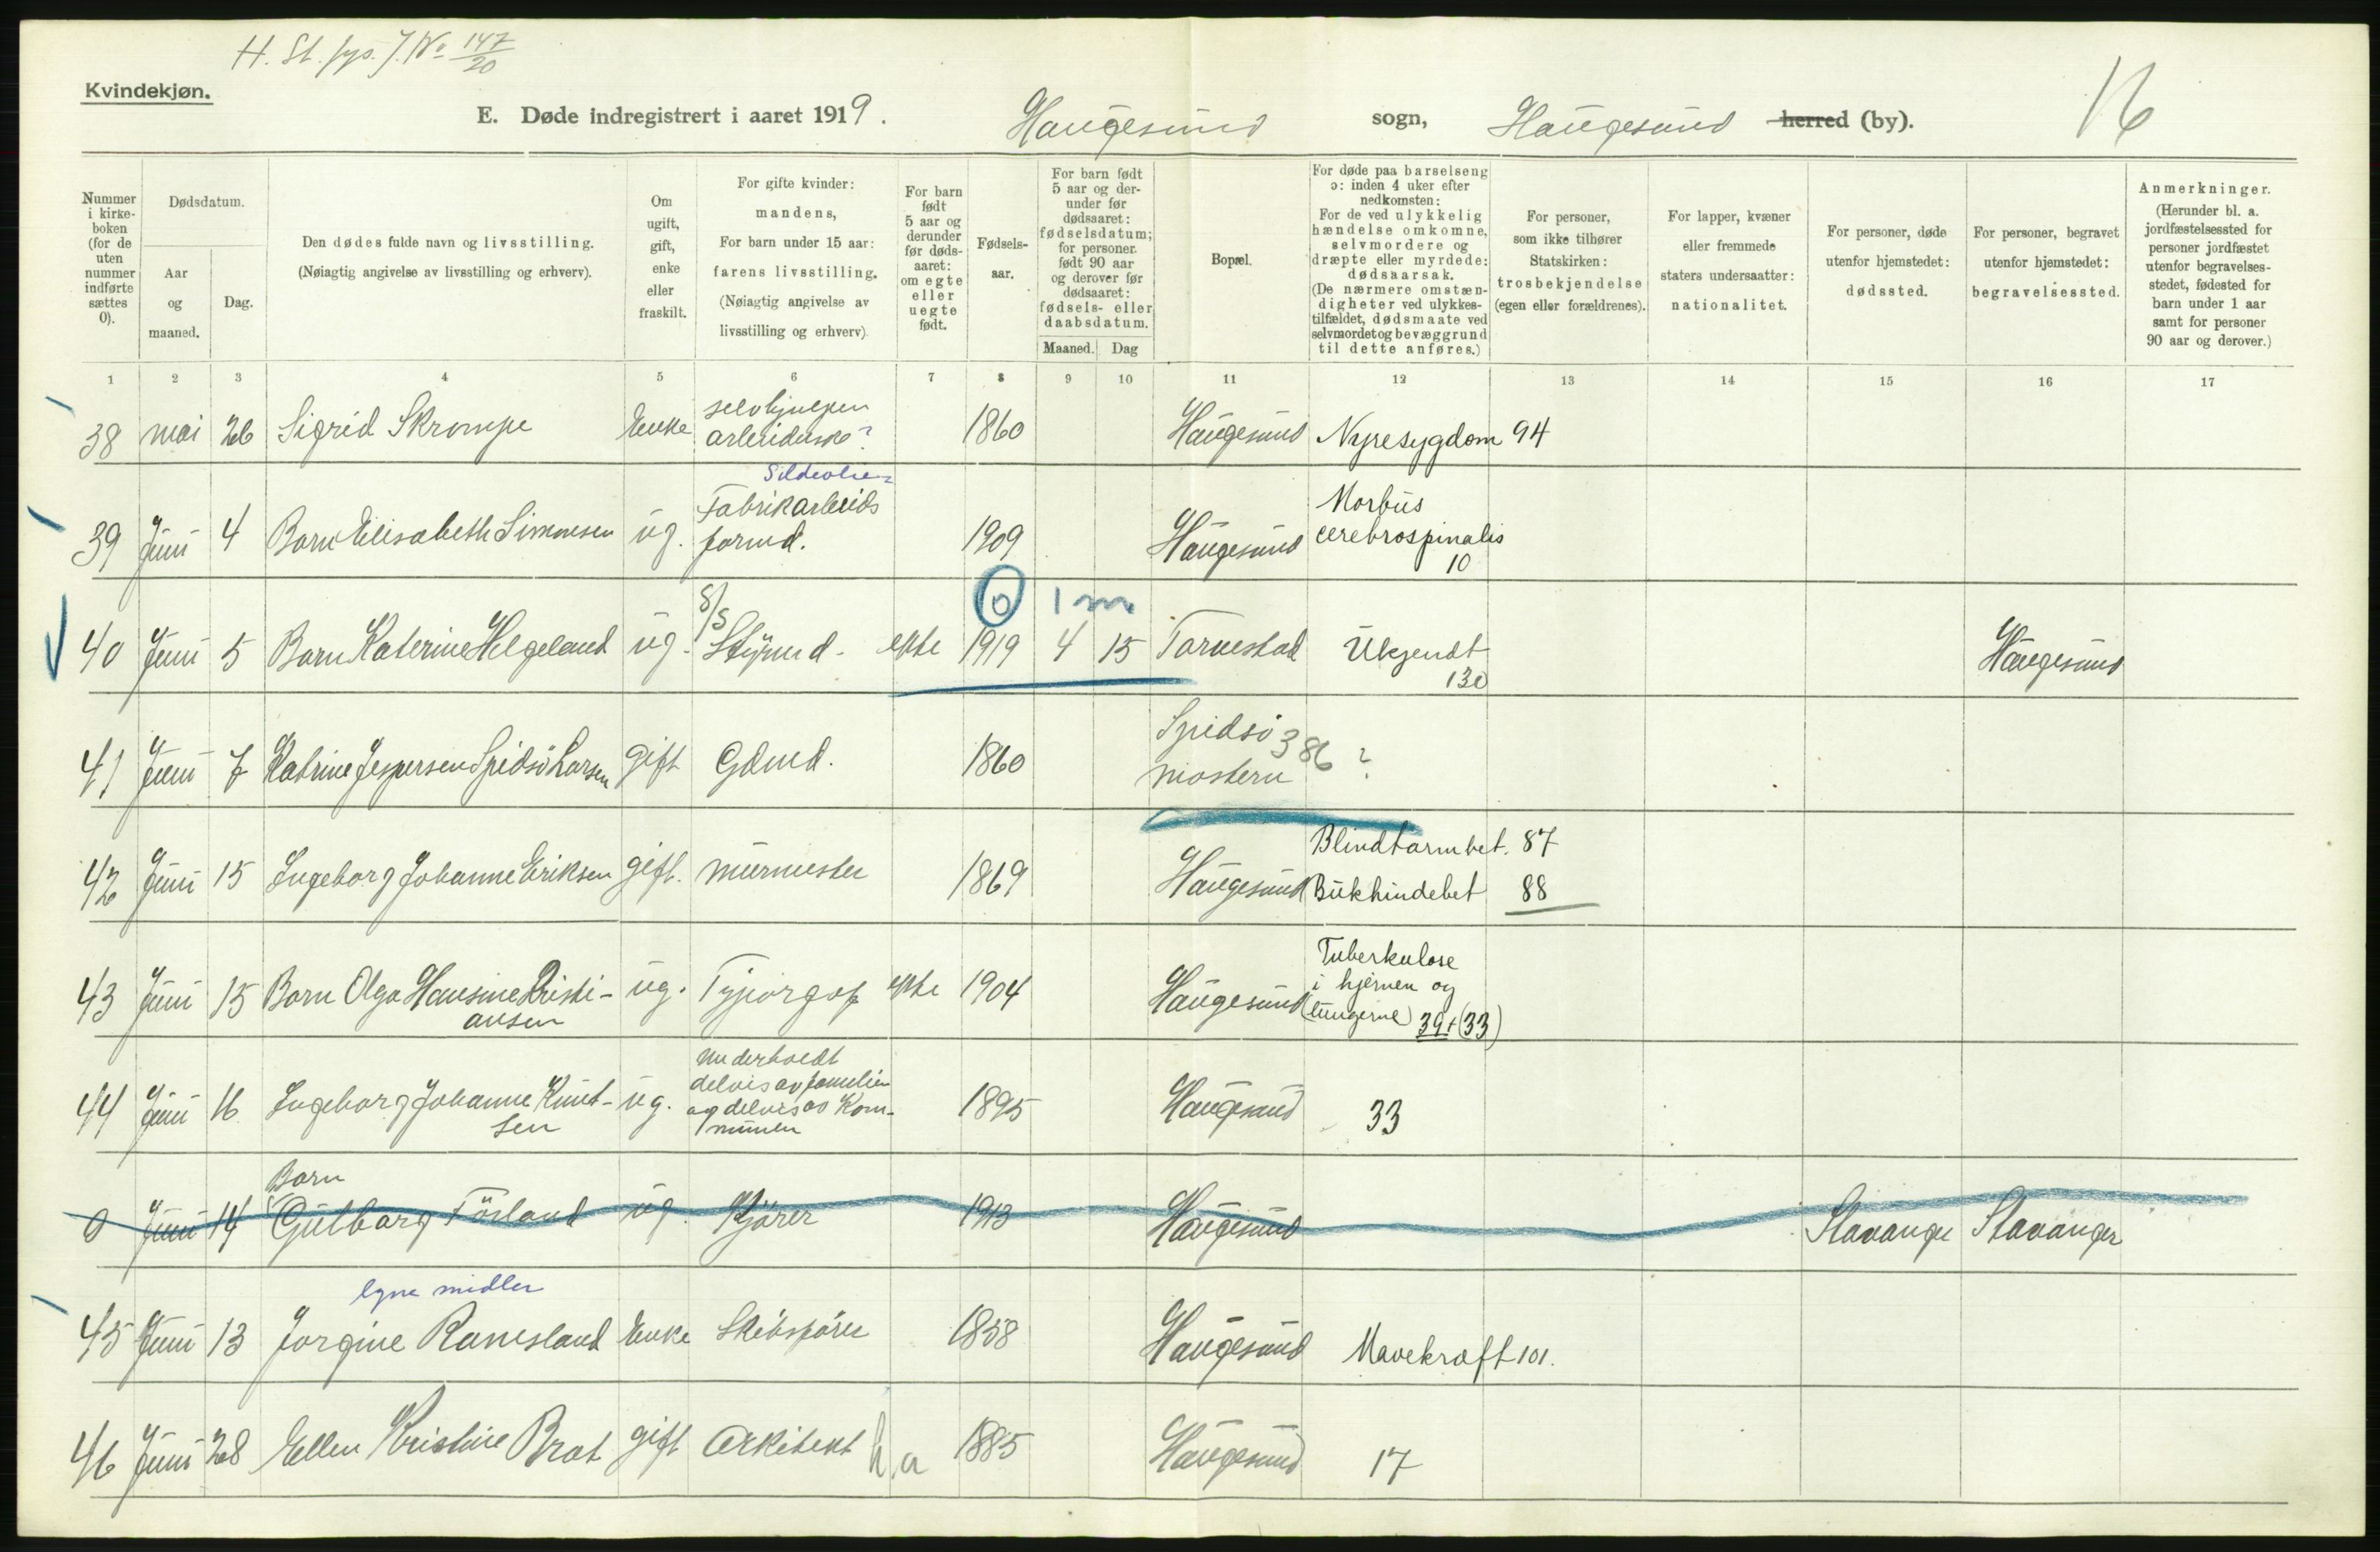 H. St. fys. J. No 147/20
Kvindekjøn.
E. Døde indregistrert i aaret 1919. Haugesund sogn, Haugesund herred (by). 16
Nummer i kirkeboken (for de uten nummer indførte sættes 0).
Dødsdatum.
Aar og maaned.
Dag.
Den dødes fulde navn og livsstilling.
(Nøiagtig angivelse av livsstilling og erhverv).
Om ugift, gift, enke eller fraskilt.
For gifte kvinder: mandens, For barn under 15 aar: farens livsstilling. (Nøiagtig angivelse av livsstilling og erhverv)
For barn født 5 aar og derunder før dødsaaret: om egte eller uegte født.
Fødselsaar.
For barn født 5 aar og derunder før dødsaaret: fødselsdatum; for personer født 90 aar og derover før dødsaaret: fødsels- eller daabsdatum.
Maaned. Dag
Bopæl.
For døde paa barselseng ɔ: inden 4 uker efter nedkomsten: For de ved ulykkelig hændelse omkomne, selvmordere og dræpte eller myrdede: dødsaarsak. (De nærmere omstændigheter ved ulykkestilfældet, dødsmaate ved selvmordet og bevæggrund til dette anføres.)
For personer, som ikke tilhører Statskirken: trosbekjendelse (egen eller forældrenes).
For lapper, kvæner eller fremmede staters undersaatter: nationalitet.
For personer, døde utenfor hjemstedet: dødssted.
For personer, begravet utenfor hjemstedet: begravelsessted.
Anmerkninger. (Herunder bl. a. jordfæstelsessted for personer jordfæstet utenfor begravelsesstedet, fødested for barn under 1 aar samt for personer 90 aar og derover.)
1 2 3 4 5 6 7 8 9 10 11 12 13 14 15 16 17
38 mai 26 Sigrid Skrompe Enke selvhjulpen arbeiderske? 1860 Haugesund Nyresygdom 94
Sildeolie
39 Juni 4 Barn Elisabeth Simonsen ug. Fabrikarbeids formd. 1909 Haugesund Morbus cerebrospinalis 10
0 1 m
40 Juni 5 Barn Katerine Helgeland ug. S/S Styrmd. egte 1919 4 15 Tornestad Ukjendt 130 Haugesund
41 Juni 7 Katrine Jespersen Spidsö Larsen gift Gdmd. 1860 Spidsö mostern 386 ?
42 Juni 15 Ingeborg Johanne Eriksen gift. murmester 1869 Haugesund Blindtarmbet. 87 Bukhindebet 88
43 Juni 15 Barn Olga Hansine Kristiansen ug. Typograf egte 1904 Haugesund Tuberkulose i hjernen og (lungerne) 39+(33)
44 Juni 16 Ingeborg Johanne Knutsen ug. Underholdt delvis av familien og delvis av Kommunen 1895 Haugesund 33
0 Juni 14 Barn Gutborg Försland ug. Kjörer 1913 Haugesund Stavanger Stavanger
egne midler
45 Juni 13 Jorgine Ramsland Enke Skibsförer 1858 Haugesund Mavekræft 101.
46 Juni 28 Ellen Kristine Brat gift Arkitekt h.a 1885 Haugesund 17